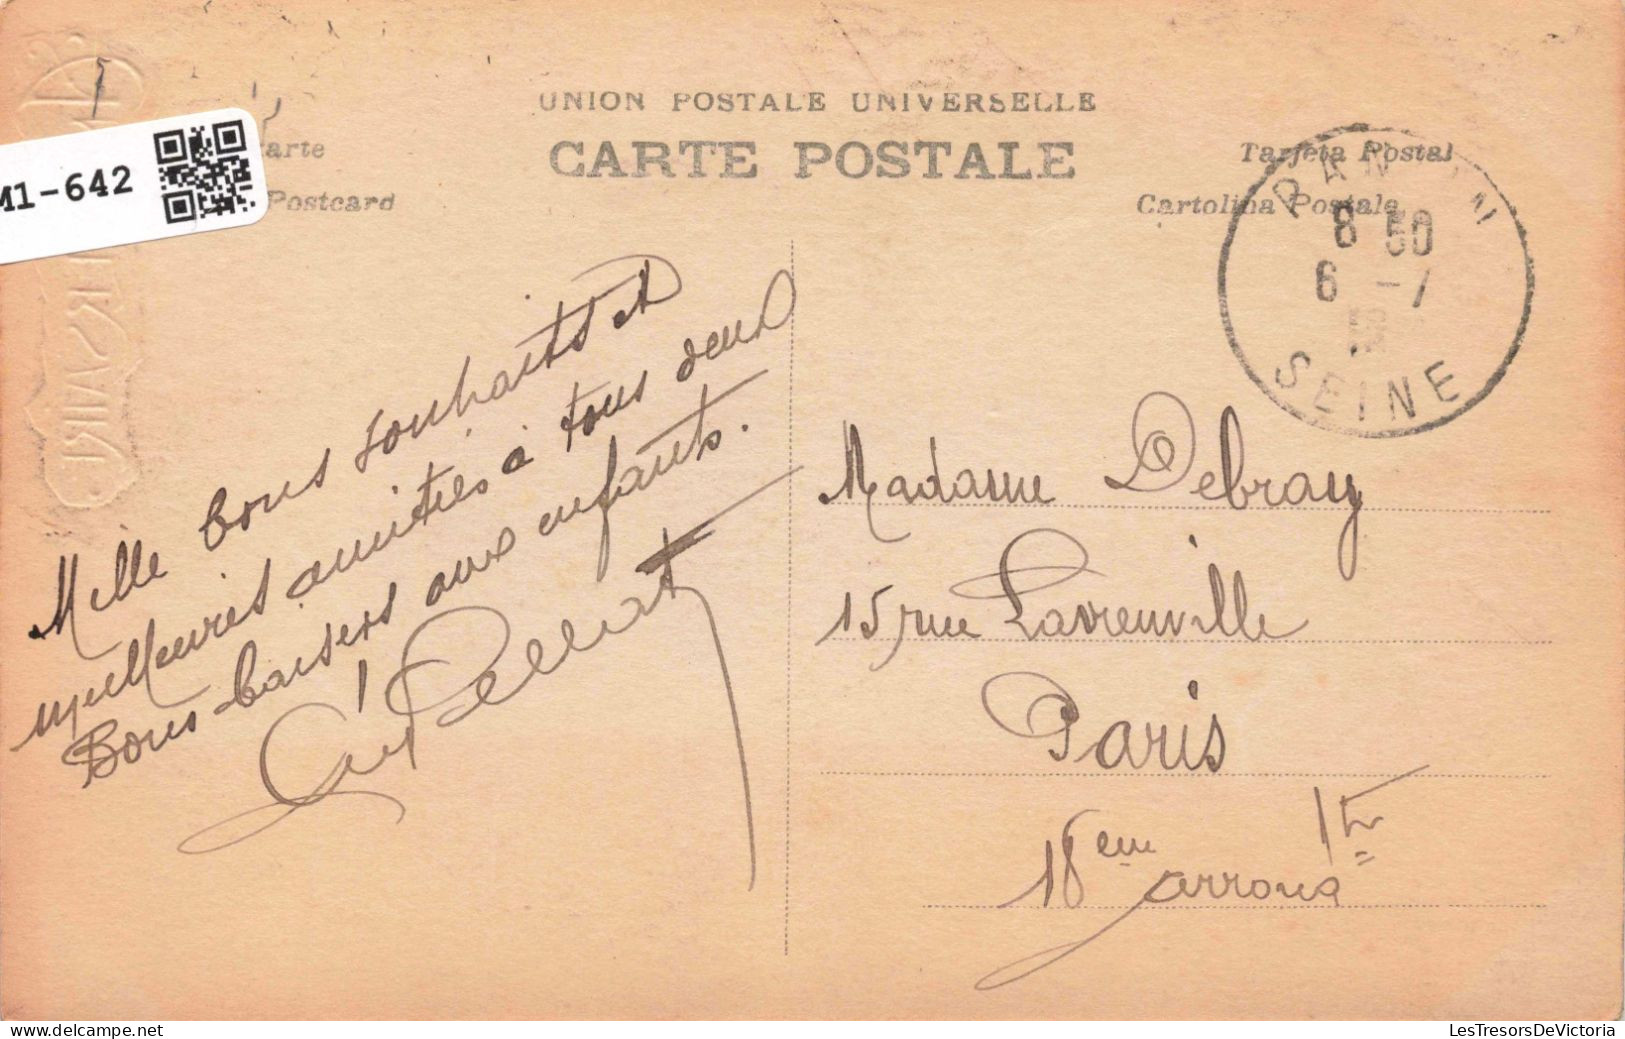 UNION POSTALE UNIVERSELLE
CARTE POSTALE
arte
Postcard
Tarjeta Postal
Cartolina Postale
M1-642
PANTIN
8 50
6 -7
SEINE
Mille bons souhaits et
meilleures amitiés à tous deux
Bons baisers aux enfants.
Madame Debray
15 rue Lavieuville
Paris
18eme arrond
LesTresorsDeVictoria